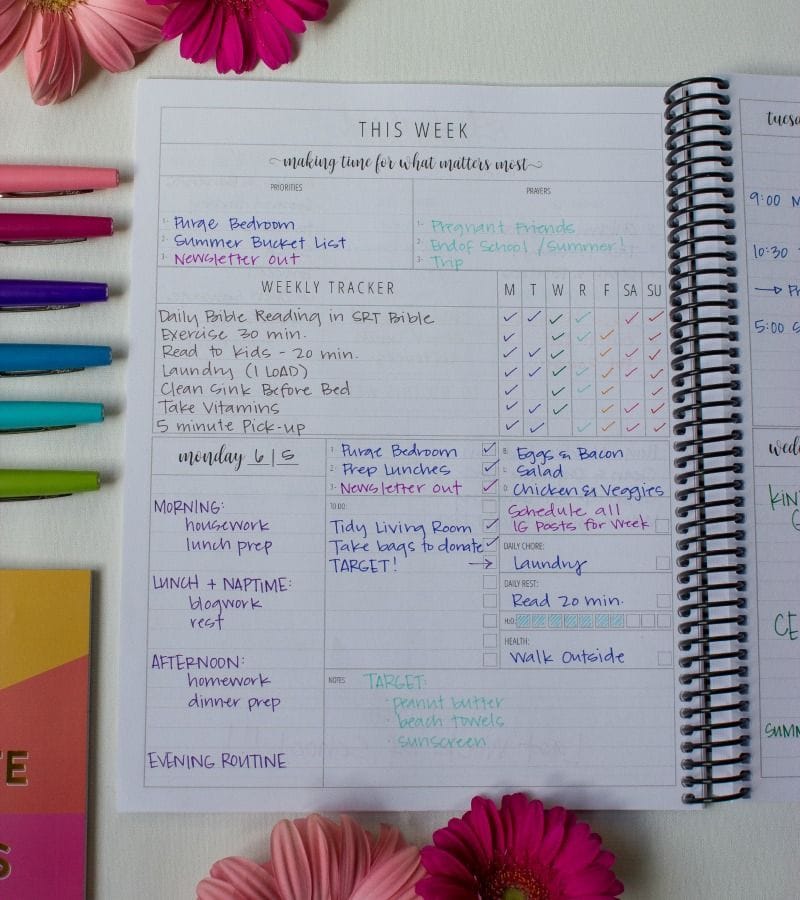 THIS WEEK
making time for what matters most
PRIORITIES
1. Purge Bedroom
2. Summer Bucket List
3. Newsletter out
PRAYERS
1. Pregnant Friends
2. End of School / Summer!
3. Trip
WEEKLY TRACKER M T W R F SA SU
Daily Bible Reading in SRT Bible
Exercise 30 min.
Read to Kids - 20 min.
Laundry (1 LOAD)
Clean Sink Before Bed
Take Vitamins
5 minute Pick-up
monday 6|5
MORNING:
housework
lunch prep
LUNCH + NAPTIME:
blogwork
rest
AFTERNOON:
homework
dinner prep
EVENING ROUTINE
1. Purge Bedroom
2. Prep Lunches
3. Newsletter out
TO DO:
Tidy Living Room
Take bags to donate
TARGET!
B: Eggs & Bacon
L: Salad
D: Chicken & Veggies
Schedule all
16 Posts for Week
DAILY CHORE:
Laundry
DAILY REST:
Read 20 min.
H2O:
HEALTH:
Walk Outside
NOTES TARGET:
· peanut butter
· beach towels
· sunscreen
9:00
10:30
5:00